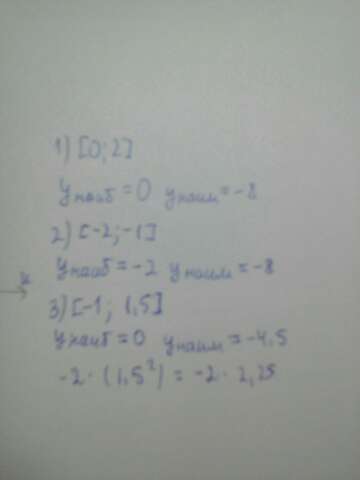 1) [0; 2]
Yнаиб = 0 yнаим = -8
2) [-2; -1]
Yнаиб = -2 yнаим = -8
x
3) [-1; 1,5]
Yнаиб = 0 yнаим = -4,5
-2 · (1,5²) = -2 · 2,25